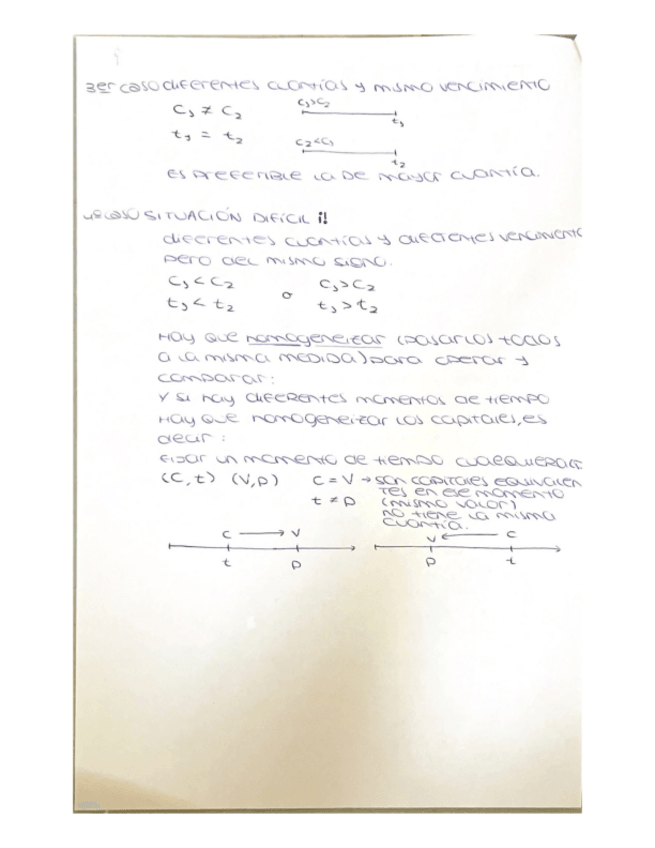 3er caso diferentes cuantías y mismo vencimiento
C₁ ≠ C₂
C₁>C₂
t₁
t₁ = t₂
C₂<C₁
t₂
es preferible la de mayor cuantía.
4º caso SITUACIÓN DIFÍCIL ¡!
diferentes cuantías y diferentes vencimiento
pero del mismo signo.
C₁ < C₂ o C₁ > C₂
t₁ < t₂ t₁ > t₂
Hay que homogeneizar (pasarlos todos
a la misma medida) para operar y
comparar:
Y si hay diferentes momentos de tiempo
Hay que homogeneizar los capitales, es
decir:
Fijar un momento de tiempo cualequiera
(C, t) (V, p) C = V → son capitales equivalen
tes en ese momento
t ≠ p (mismo valor)
no tiene la misma
cuantía.
C → V
t p
V ← C
p t